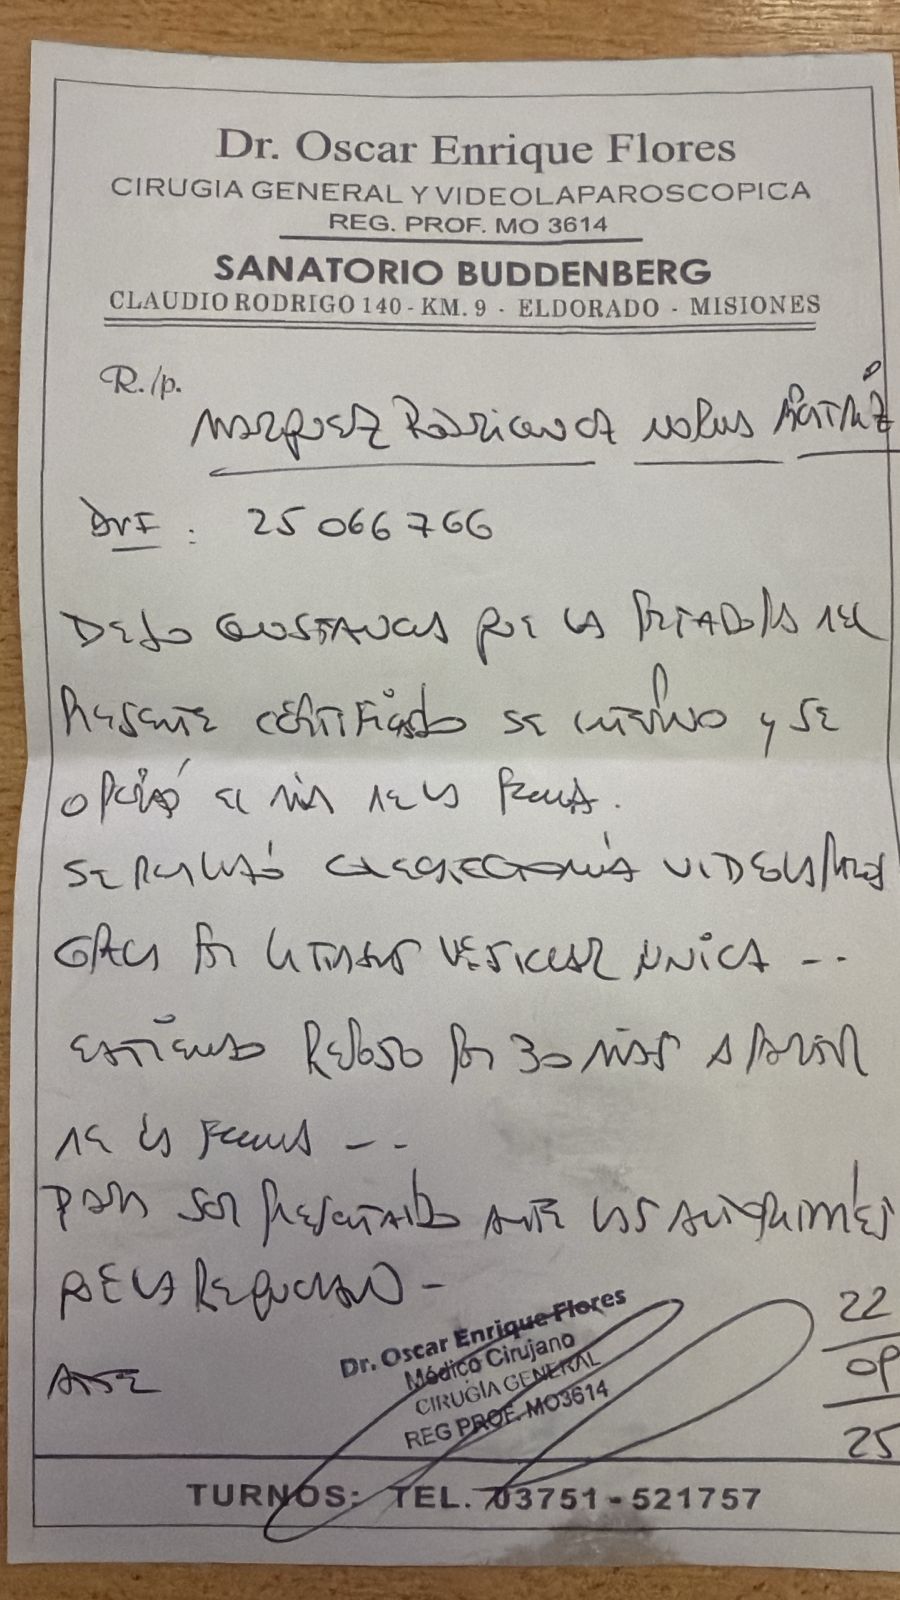 Dr. Oscar Enrique Flores
CIRUGIA GENERAL Y VIDEOLAPAROSCOPICA
REG. PROF. MO 3614
SANATORIO BUDDENBERG
CLAUDIO RODRIGO 140 - KM. 9 - ELDORADO - MISIONES
R./p.
MARQUEZ
DNI : 25 066 766
DEJO CONSTANCIA QUE LA PORTADORA DEL
PRESENTE CERTIFICADO SE INTERNO Y SE
OPERÓ EL DIA DE LA FECHA.
SE REALIZÓ COLECISTECTOMIA VIDEOLAPAROS
COPICA POR LITIASIS VESICULAR UNICA --
EXTIENDO REPOSO POR 30 DIAS A PARTIR
DE LA FECHA --
PARA SER PRESENTADO ANTE LAS AUTORIDADES
QUE LA REQUIERAN -
ATTE
Dr. Oscar Enrique Flores
Médico Cirujano
CIRUGÍA GENERAL
REG PROF. MO3614
22
09
25
TURNOS: TEL. 03751 - 521757